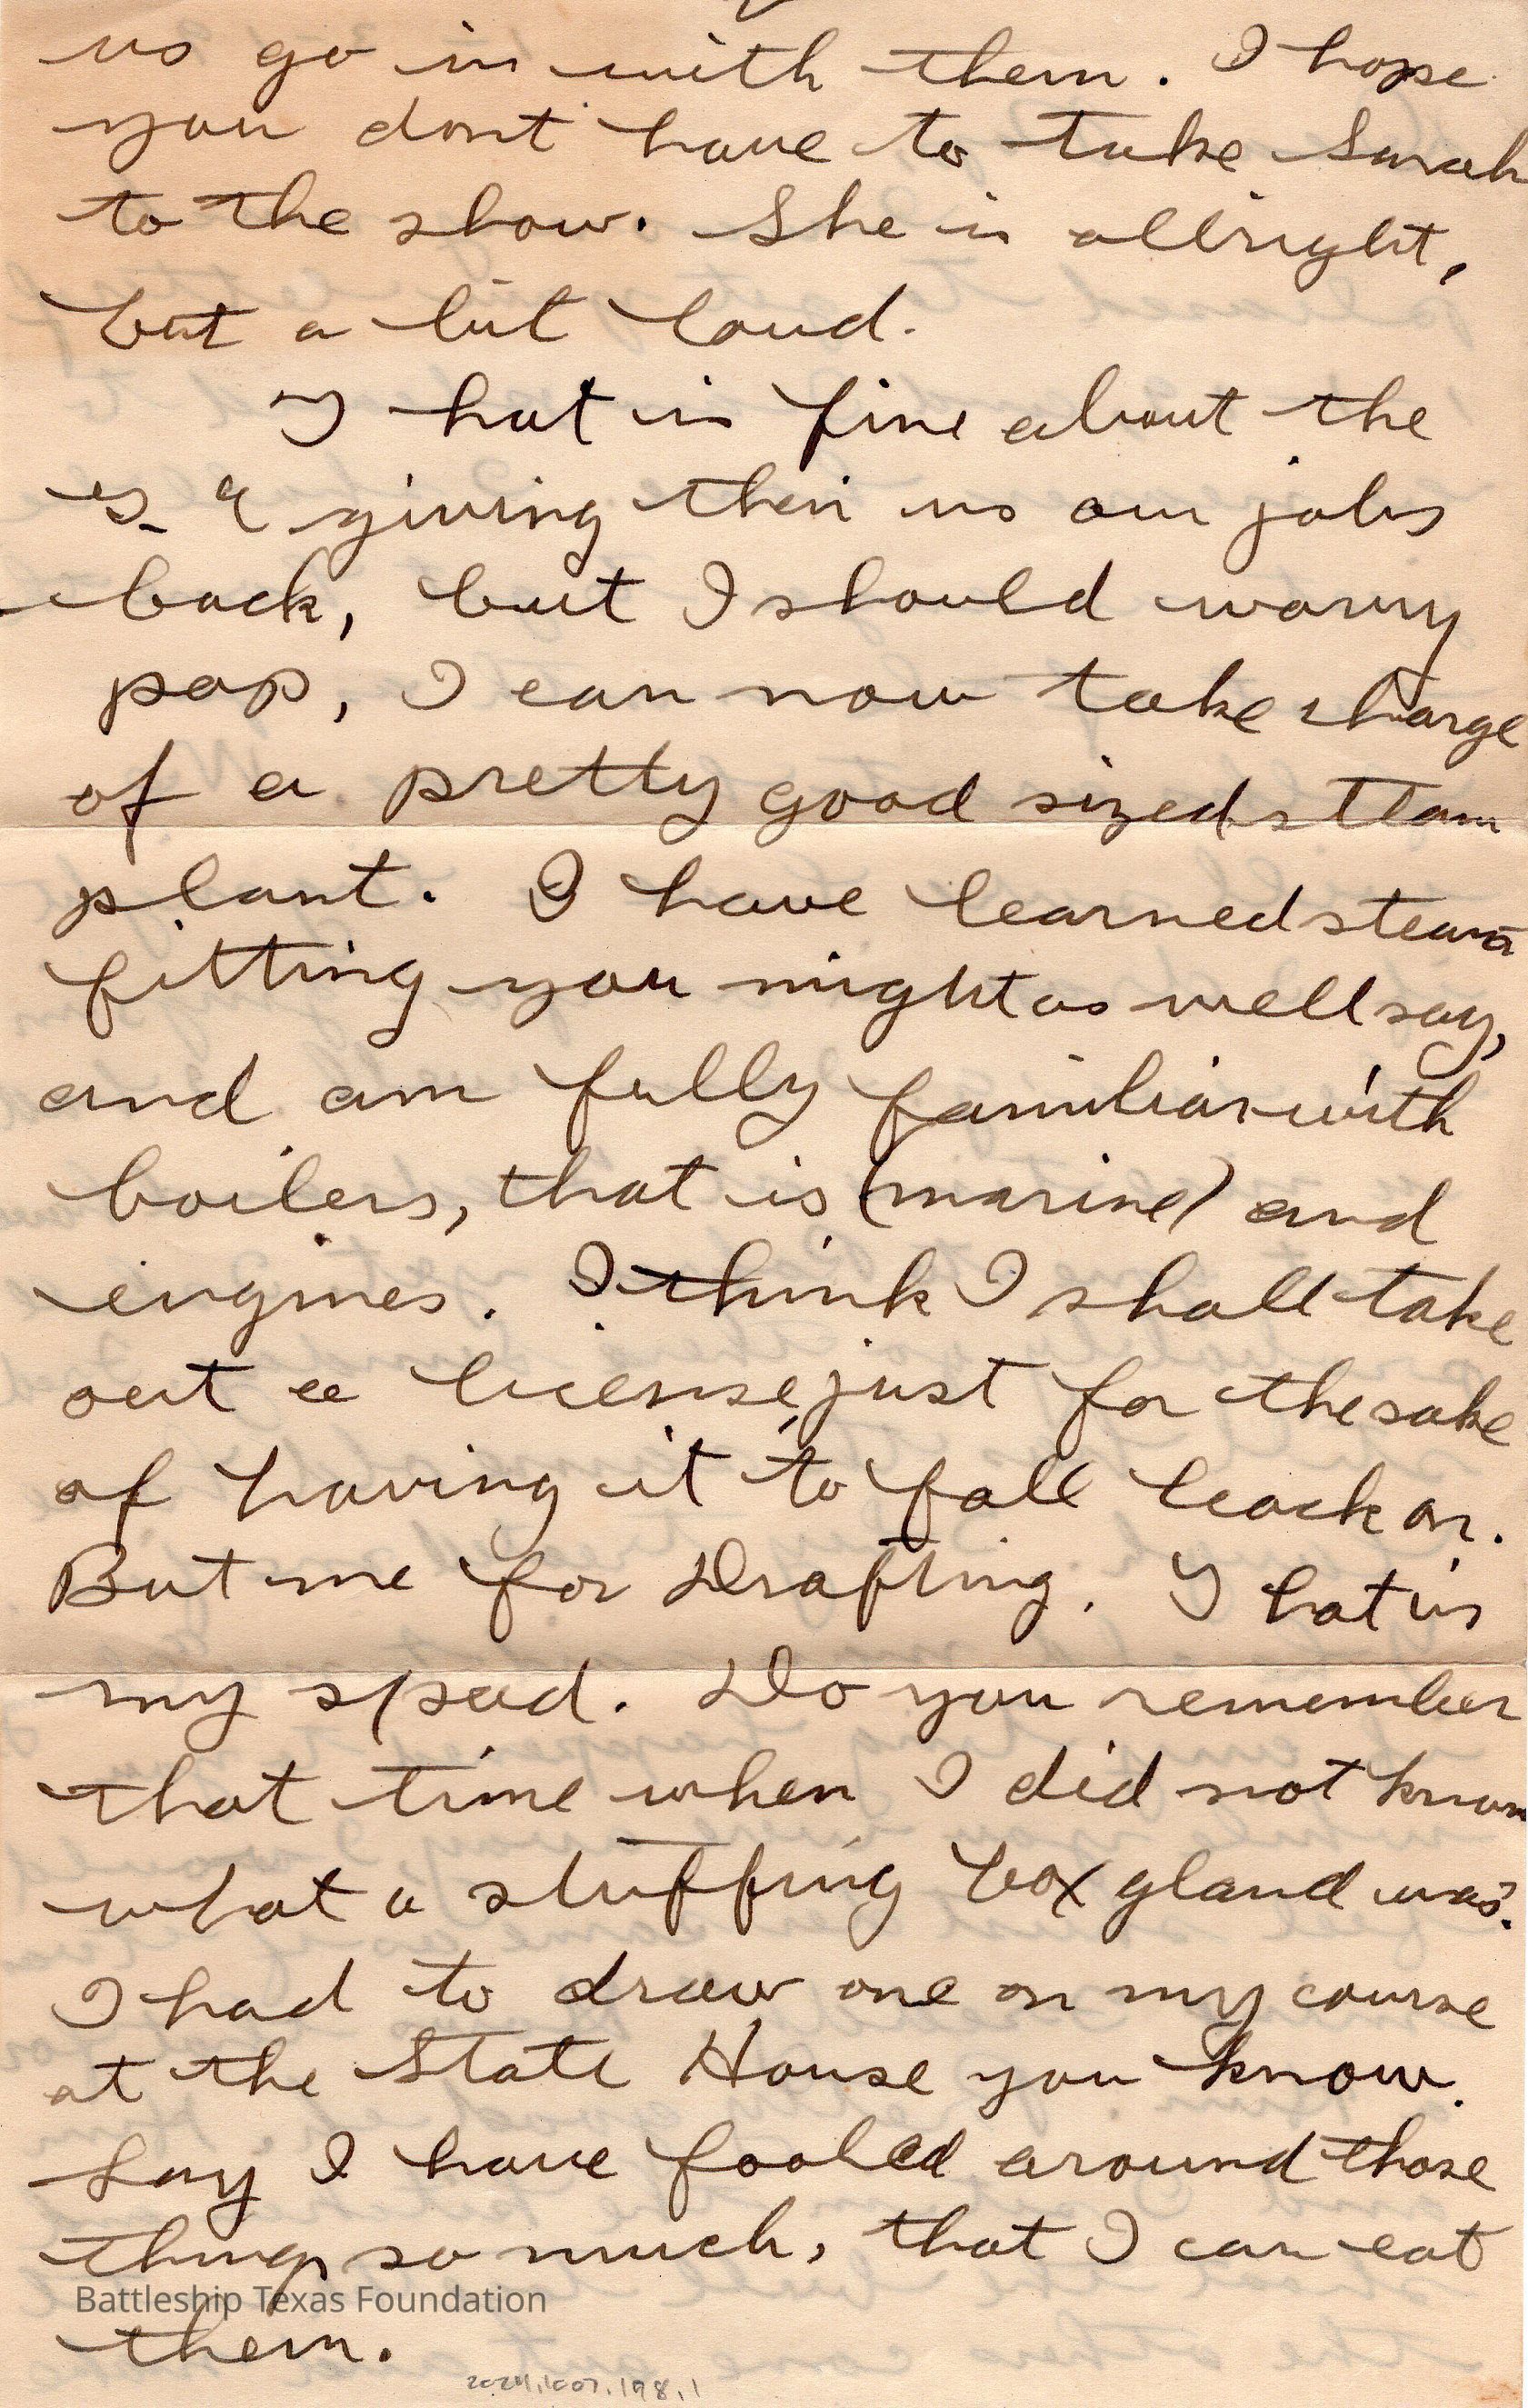 us go in with them. I hope
you dont have to take Sarah
to the show. She is allright,
but a bit loud.
That is fine about the
giving us our jobs
back, but I should worry
pop, I can now take charge
of a pretty good sized steam
plant. I have learned steam
fitting you might as well say,
and am fully familiar with
boilers, that is (marine) and
engines. I think I shall take
out a license just for the sake
of having it to fall back on.
But me for Drafting. That is
my spud. Do you remember
that time when I did not know
what a stuffing box gland was.
I had to draw one on my course
at the State House you know.
Say I have fooled around those
things so much, that I can eat
Battleship Texas Foundation
them.
2024.1007.198.1